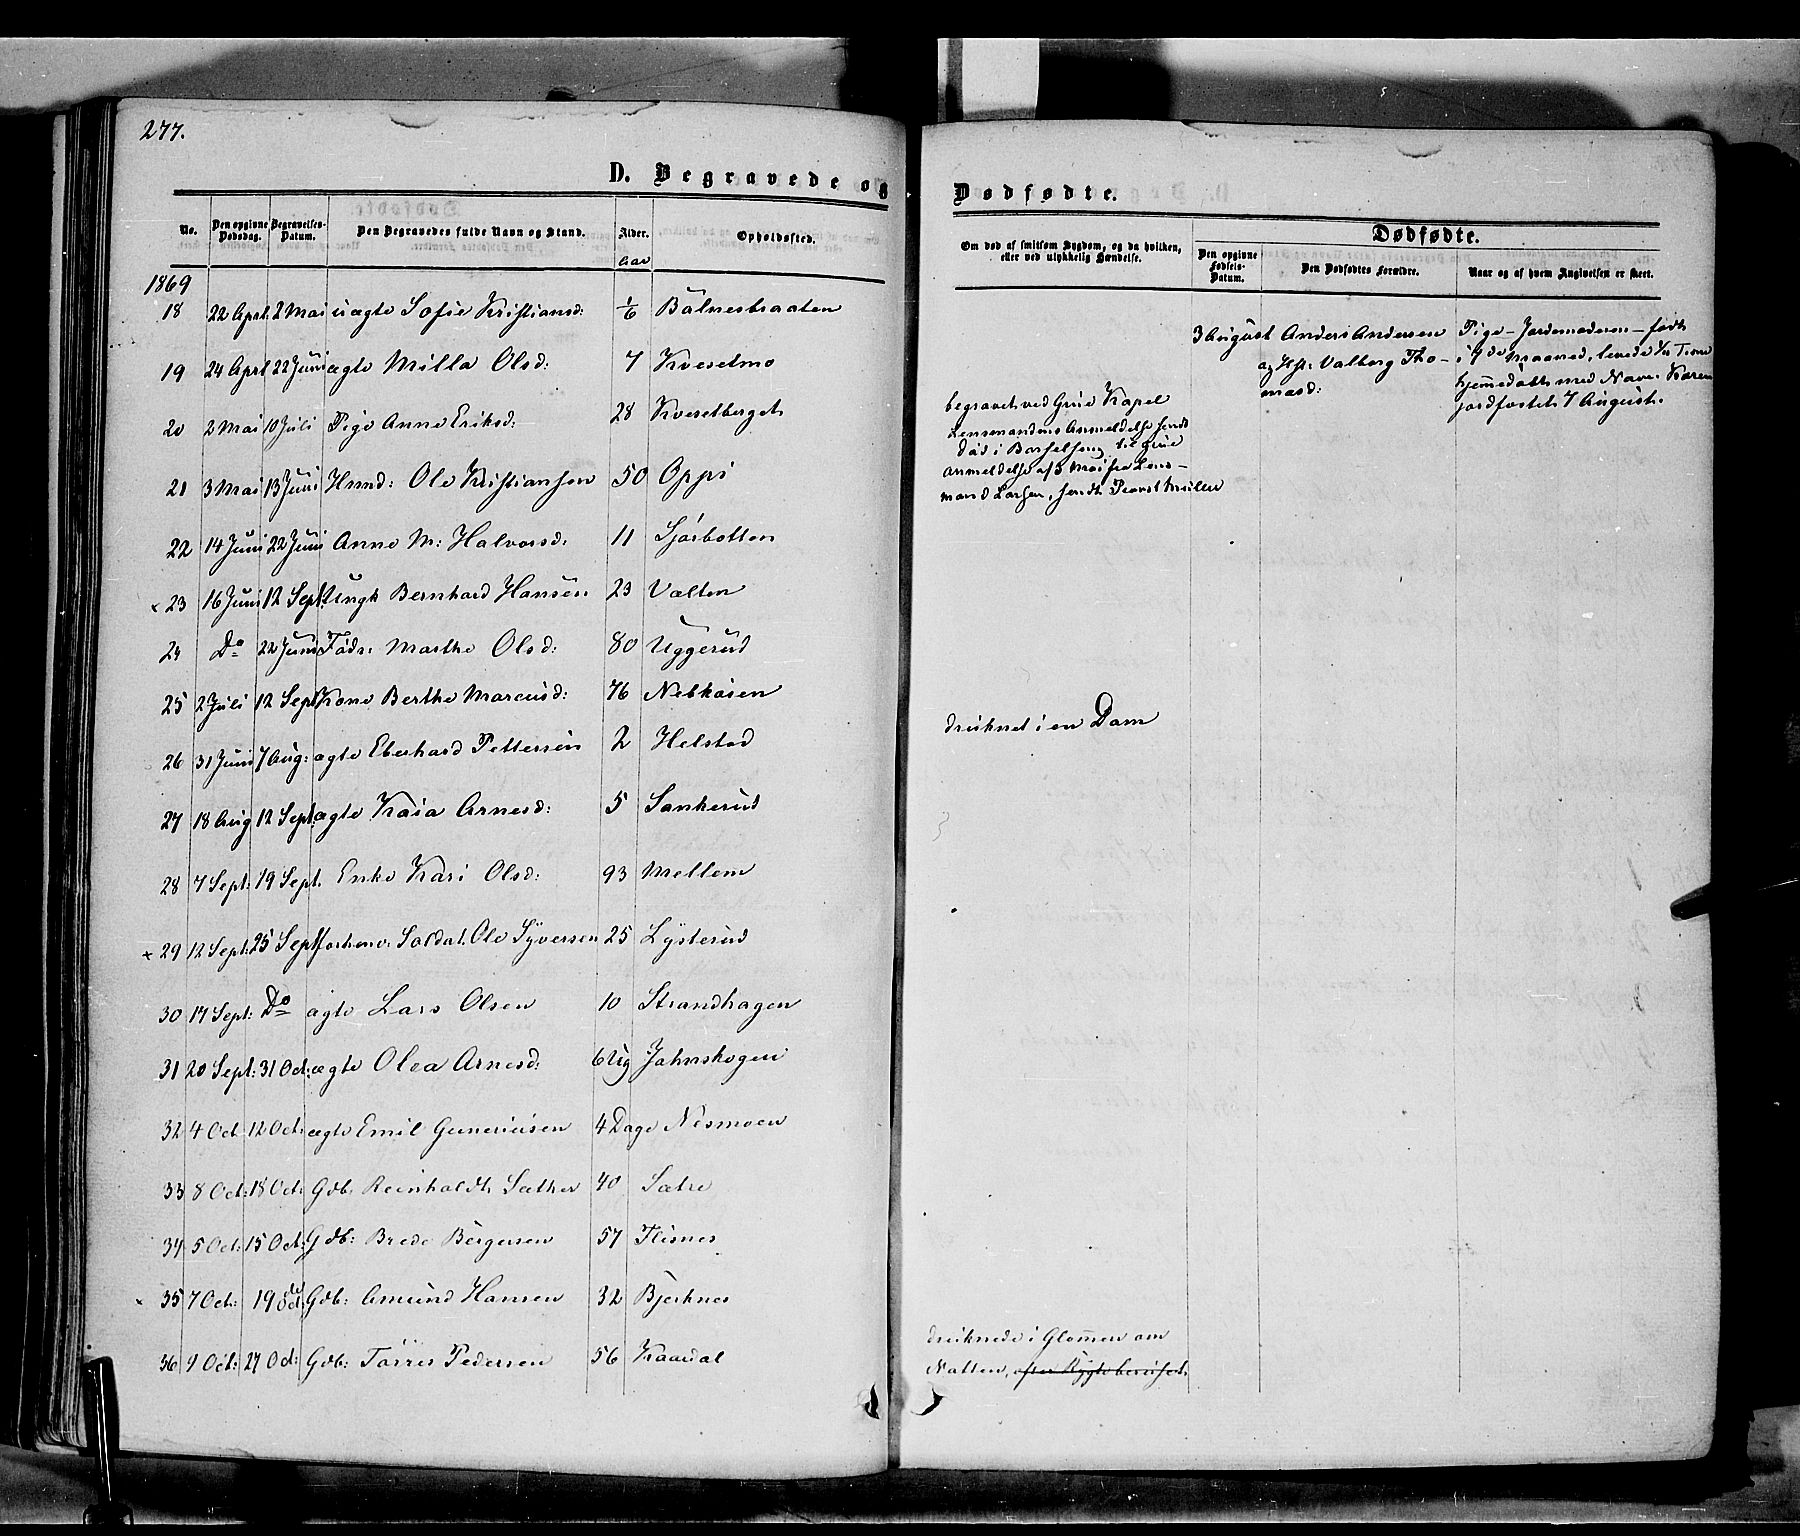 277.
D. Begravede og
Dødfødte.
No. Den opgivne Dødsdag. Begravelses-Datum. Den Begravedes fulde Navn og Stand. Alder. Opholdssted.
Aar
Om død af smitsom Sygdom, og da hvilken, eller ved ulykkelig Hændelse.
Dødfødte.
Den opgivne Fødsels-Datum. Den Dødfødtes Forældre. Naar og af hvem Angivelsen er skeet.
1869
18 22 April 2 Mai uægte Sofie Kristiansd: 1/6 Bälnesbraaten
19 24 April 22 Juni ægte Milla Olsd: 7 Kvesetmo
20 2 Mai 10 Juli Pige Anne Eriksd: 28 Kvesetberget
21 3 Mai 13 Juni Hmnd: Ole Kristiansen 50 Oppi
22 14 Juni 22 Juni Anne M: Halvorsd: 11 Sjørbotten
× 23 16 Juni 12 Sept: Ungk Bernhard Hansen 23 Valten
24 Do 22 Juni Føds: Marthe Olsd: 80 Uggerud
25 2 Juli 12 Sept Kone Berthe Marcusd: 76 Nebkåsen
26 31 Juni 7 Aug: ægte Eberhard Pettersen 2 Helstad
27 18 Aug 12 Sept: ægte Kaia Arnesd: 5 Sankerud
28 7 Sept: 19 Sept. Enke Kari Olsd: 93 Mellem
× 29 12 Sept: 25 Sept forhenv: Soldat Ole Syversen 25 Lysterud
30 17 Sept: Do ægte Lars Olsen 10 Strandhagen
31 20 Sept: 31 Oct: ægte Olea Arnesd: 6 Ug Jahnskogen
32 4 Oct 12 Oct: ægte Emil Guneriusen 4 Dage Nesmoen
33 8 Oct: 18 Oct: Gdb: Reinholdt Sæther 40 Sætre
34 5 Oct: 15 Oct: Gdb: Brede Børgersen 57 Flisnes
× 35 7 Oct: 19de Oct: Gdb: Amund Hansen 32 Bjerknes
36 9 Oct: 27 Oct: Gdb: Tørris Pedersen 56 Kaardal
begravet ved Grue Kapel
Lensmandens Anmeldelse sendt
død i Barselseng til Grue
anmeldelse af 3 Mai fra Lens-
mand Larsen, sendt Provst Müller
druknet i en Dam
druknede i Glommen om
Natten, efter Rygte beruset.
3 August Anders Andersen
og Hst: Valborg Tho-
masd:
Pige – Jordemoderen – født
i 7de Maaned, levede 1/2 Time
hjemmedøbt med Navn Karen
jordfæstet 7 August.